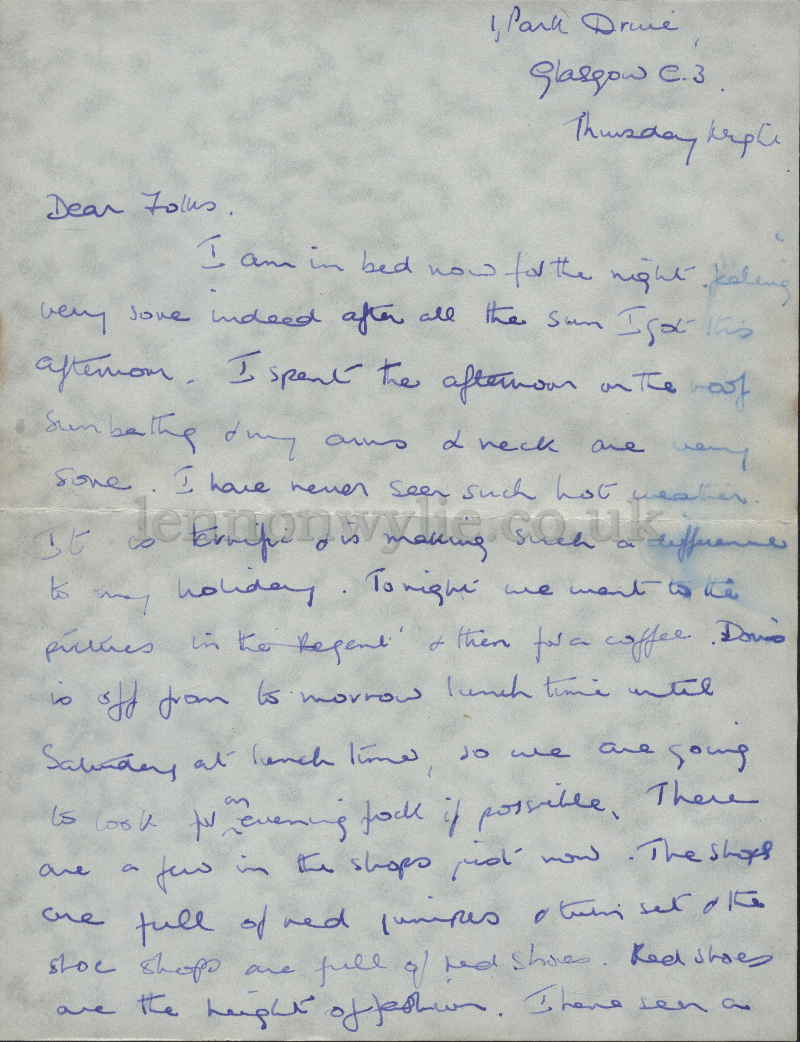 1, Park Drive,
Glasgow C.3.
Thursday Night
Dear Folks.
I am in bed now for the night feeling
very sore indeed after all the sun I got this
afternoon. I spent the afternoon on the roof
sunbathing & my arms & neck are very
sore. I have never seen such hot weather.
lennonwylie.co.uk
It is terrific & is making such a difference
to my holiday. Tonight we went to the
pictures in the Regent & then for a coffee. Doris
is off from to morrow lunch time until
Saturday at lunch time, so we are going
to look for an evening frock if possible. There
are a few in the shops just now. The shops
are full of red jumpers & twin set & the
shoe shops are full of red shoes. Red shoes
are the height of fashion. I have seen a